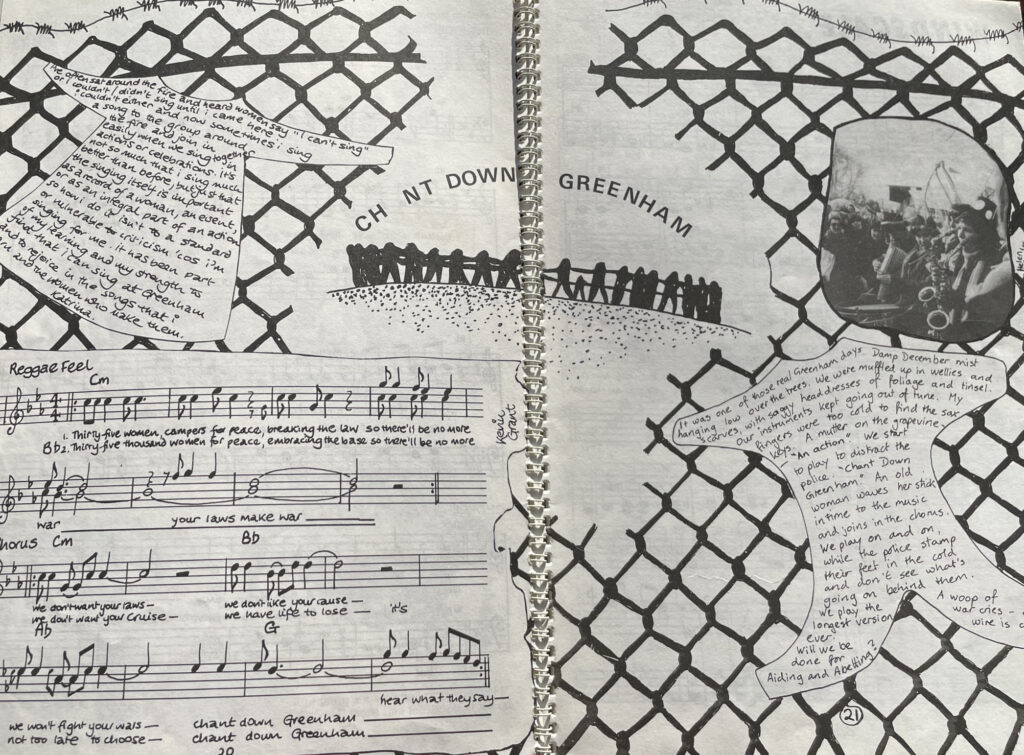 I've often sat around the fire and heard women say "I can't sing"
or I couldn't/didn't sing until i came here
"couldn't either and now sometimes i sing
a song to the group around
the fire and join in
easily when we sing together in
actions or celebrations. it's
not so much that i sing much
better than before, but just that
the singing itself is important
as a record of a woman, an event,
or as an integral part of an action
so how i do it isn't to a standard
or vulnerable to criticism 'cos i'm
singing for me. it has been part
of my learning and my strength to
find that i can sing at Greenham
and to rejoice in the songs that i
and the women who make them.
Katrina.
CH NT DOWN GREENHAM
Reggae Feel
Cm
1. Thirty-five women, campers for peace, breaking the law so there'll be no more
Bb 2. Thirty-five thousand women for peace, embracing the base so there'll be no more
war your laws make war
Chorus Cm Bb
we don't want your laws— we don't like your cause—
we don't want your Cruise— we have life to lose— it's
Ab G
hear what they say—
we won't fight your wars— chant down Greenham
not too late to choose— chant down Greenham
20
Grant
It was one of those real Greenham days. Damp December mist
hanging low over the trees. We were muffled up in wellies and
scarves, with saggy headdresses of foliage and tinsel.
Our instruments kept going out of tune. My
fingers were too cold to find the sax
keys. A mutter on the grapevine.
"An action". We start
to play to distract the
police. "Chant Down
Greenham." An old
woman waves her stick
in time to the music
and joins in the chorus.
We play on and on,
while the police stamp
their feet in the cold
and don't see what's
going on behind them.
A woop of
war cries –
wire is
we play the
longest version
ever.
Will we be
done for
Aiding and Abetting?
21